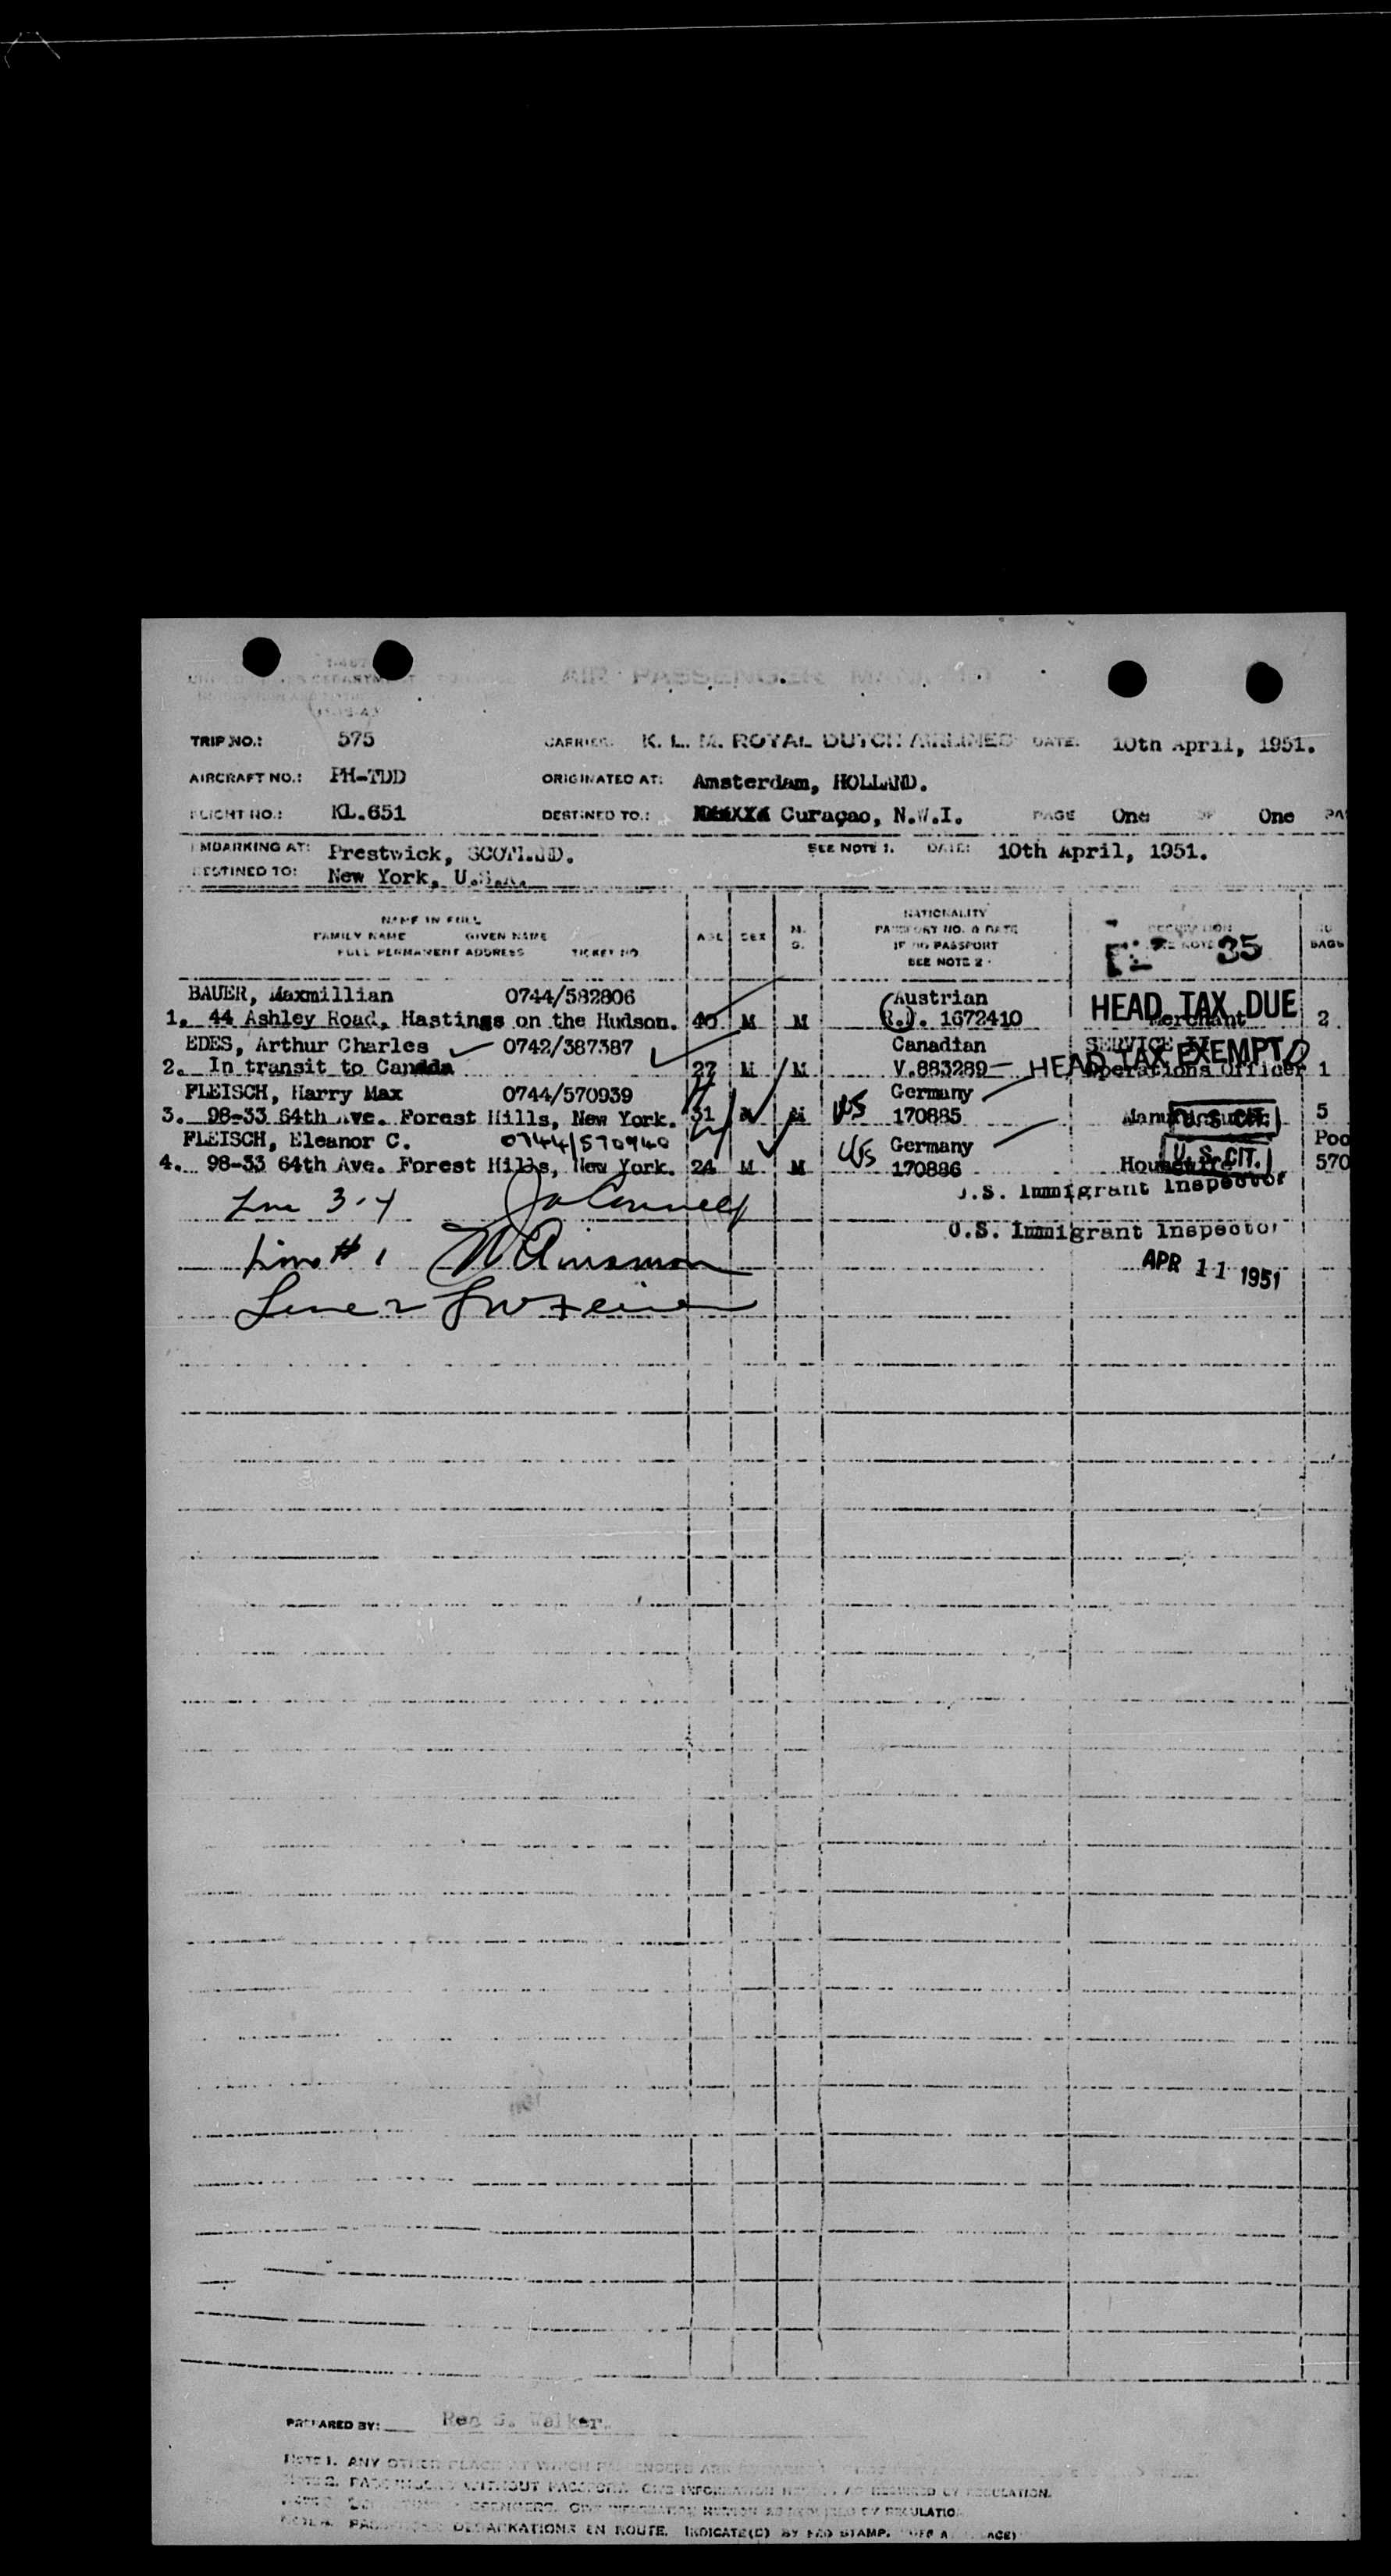 AIR PASSENGER
TRIP NO.: 575 CARRIER: K. L. M. ROYAL DUTCH AIRLINES DATE: 10th April, 1951.
AIRCRAFT NO.: PH-TDD ORIGINATED AT: Amsterdam, HOLLAND.
FLIGHT NO.: KL.651 DESTINED TO: Curaçao, N.W.I. PAGE One OF One
EMBARKING AT: Prestwick, SCOTLAND. SEE NOTE 1. DATE: 10th April, 1951.
DESTINED TO: New York, U.S.A.
NAME IN FULL
FAMILY NAME GIVEN NAME
FULL PERMANENT ADDRESS TICKET NO.
AGE SEX M. S.
NATIONALITY
PASSPORT NO. & DATE
IF NO PASSPORT
SEE NOTE 2
35
BAGS
BAUER, Maxmillian 0744/582806 Austrian HEAD TAX DUE
1. 44 Ashley Road, Hastings on the Hudson. 40 M M 1672410 Merchant 2
EDES, Arthur Charles 0742/387387 Canadian SERVICE
2. In transit to Canada 27 M M V.883289 HEAD TAX EXEMPT Operations Officer 1
FLEISCH, Harry Max 0744/570939 Germany
3. 98-33 64th Ave. Forest Hills, New York. 31 M M US 170885 U. S. CIT. 5
FLEISCH, Eleanor C. 0744/570940 Germany Poo
4. 98-33 64th Ave. Forest Hills, New York. 24 M M US 170886 U. S. CIT. 570
U.S. Immigrant Inspector
Line 3-4
U.S. Immigrant Inspector
Line # 1
APR 11 1951
Line 2
PREPARED BY: Walker.
NOTE 1. ANY OTHER PLACE AT WHICH PASSENGERS ARE
WITHOUT PASSPORT. GIVE INFORMATION REQUIRED BY REGULATION.
PASSENGERS. GIVE INFORMATION HEREON AS REQUIRED BY REGULATION
DEBARKATIONS EN ROUTE. INDICATE(D) BY STAMP.